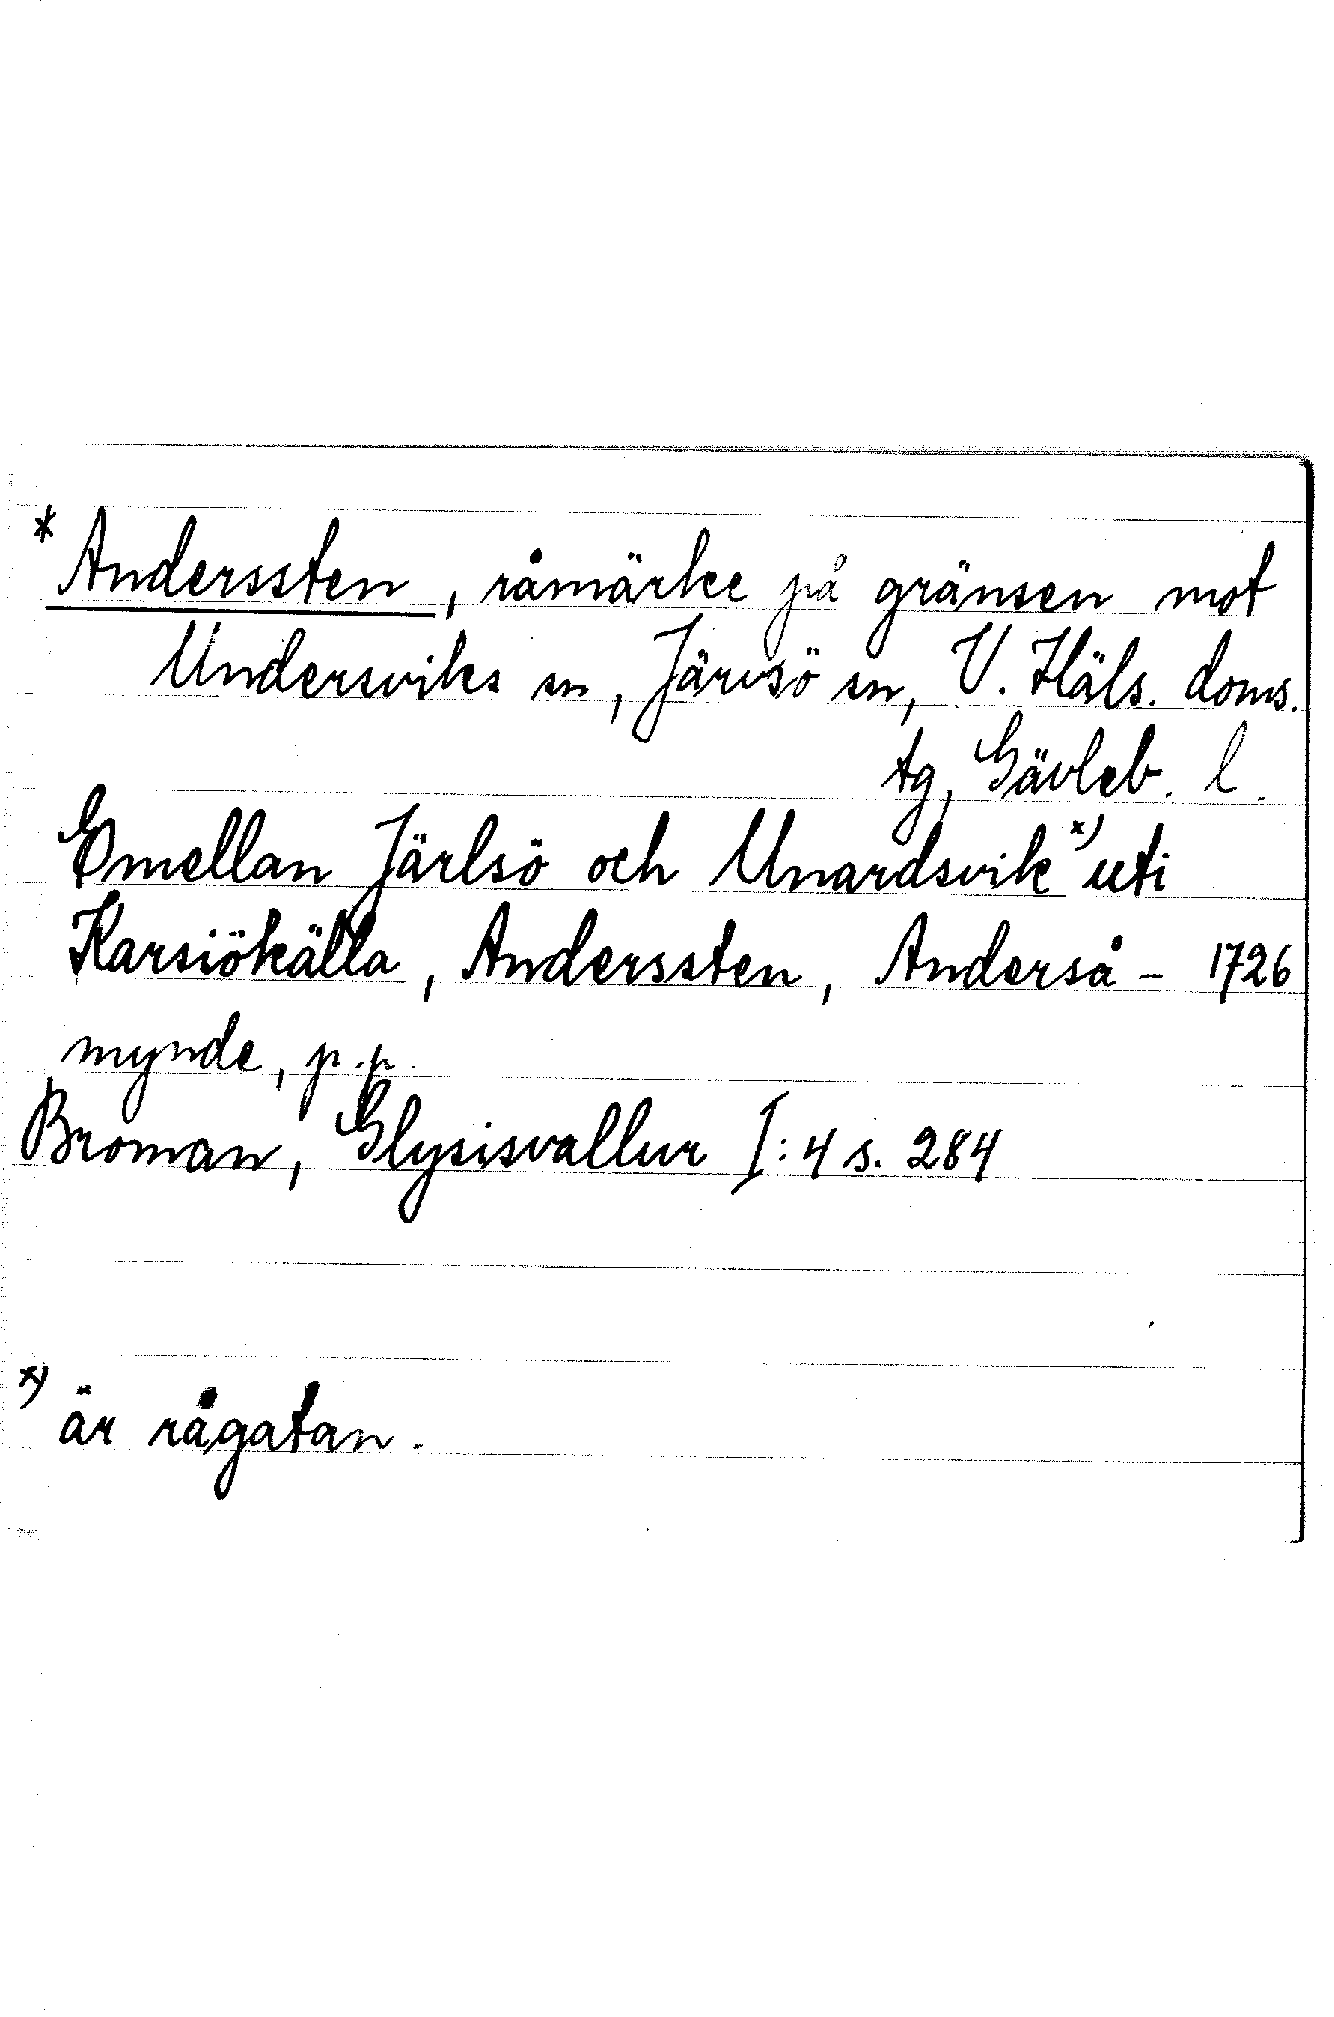 * Andersten, råmärke på gränsen mot
Undersviks sn, Järvsö sn, V. Häls. doms.
tg, Gävleb. l.
Emellan Järlsö och Unardsvik x) uti
Karsiökälla, Anderssten, Anderså - 1726
mynde, p.p.
Broman, Glysisvallur I:4 s. 284
x) är rågatan.